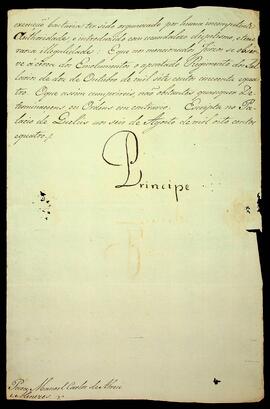 execução bastaria ter sido organizado por huma incompetente
Authoridade, e introduzido com escandaloso despotismo, e tems
raria illegalidade: E que nos mencionados Juizos se obser
ve a cerca dos Emolumentos o apontado Regimento dos Sal
larios de dez de Outubro de mil sete centos cincoenta e
quatro. O que assim cumprireis, não obstantes quaesquer De
terminaçoens ou Ordens em contrario. Escripta no Pa
lacio de Queluz aos seis de Agosto de mil oito centos
e quatro.
Principe
Para Manoel Carlos de Abreu
e Menezes